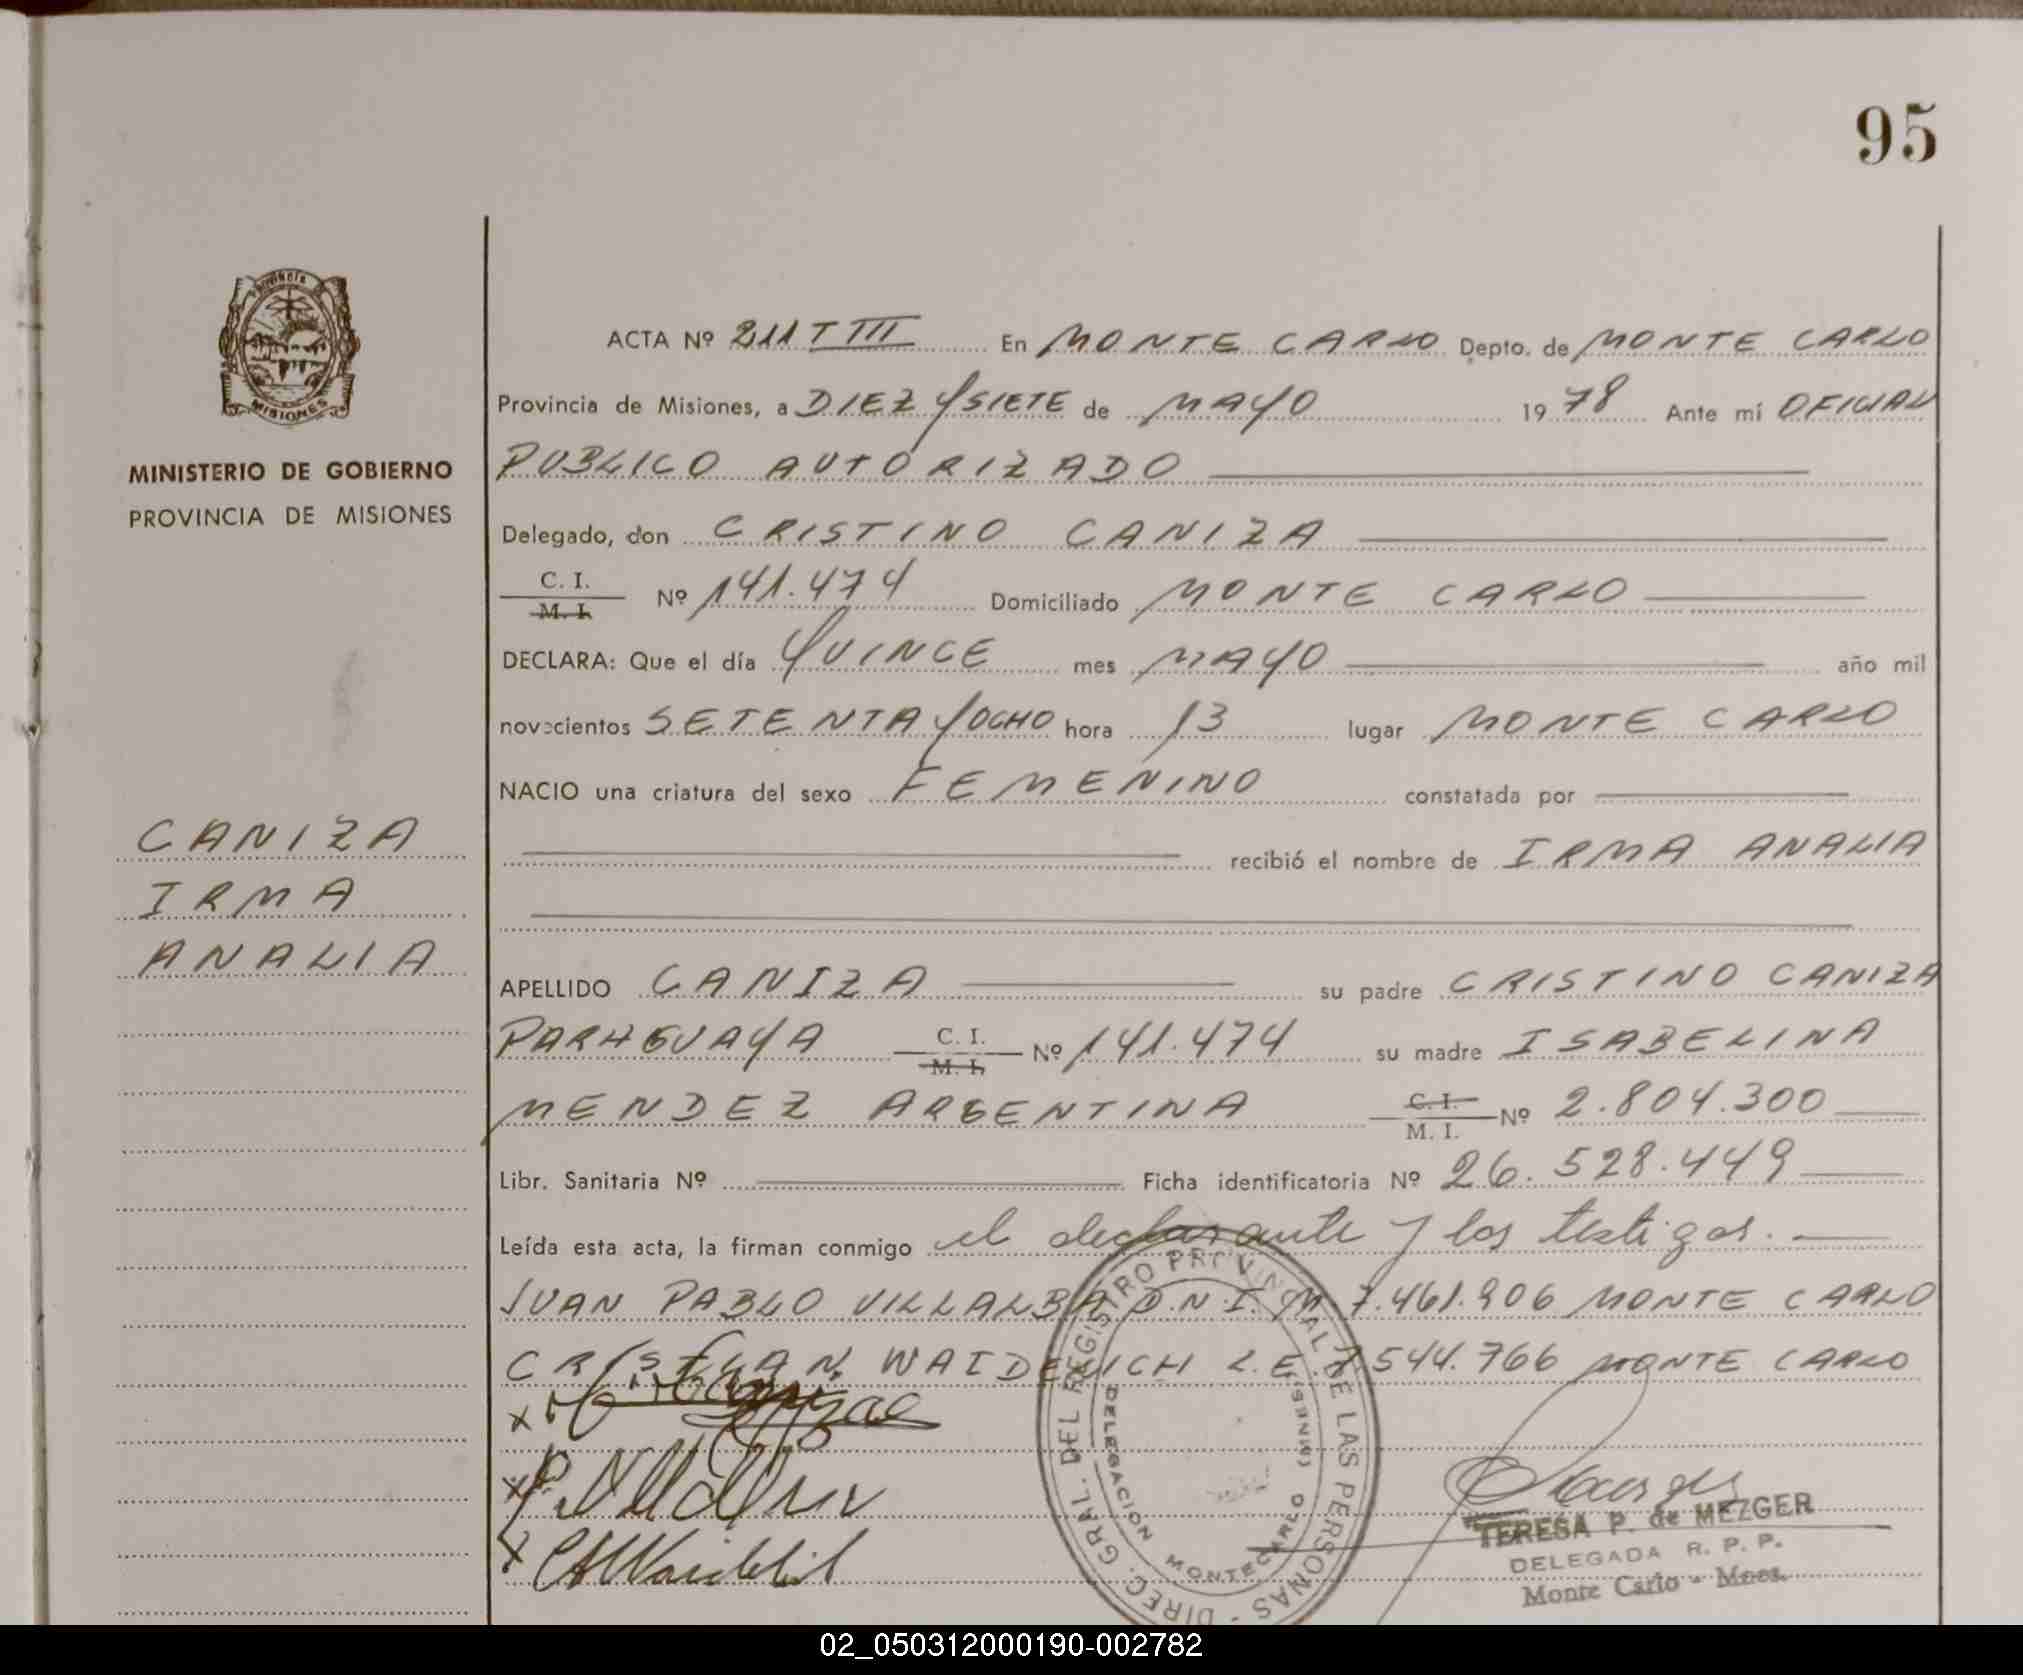 95
Provincia
MISIONES
MINISTERIO DE GOBIERNO
PROVINCIA DE MISIONES
CANIZA
IRMA
ANALIA
ACTA Nº 211 T III En MONTE CARLO Depto. de MONTE CARLO
Provincia de Misiones, a DIEZ Y SIETE de MAYO 1978 Ante mí OFICIAL
PUBLICO AUTORIZADO
Delegado, don CRISTINO CANIZA
C. I.
M. I. Nº 141.474 Domiciliado MONTE CARLO
DECLARA: Que el día QUINCE mes MAYO año mil
novecientos SETENTA Y OCHO hora 13 lugar MONTE CARLO
NACIO una criatura del sexo FEMENINO constatada por
recibió el nombre de IRMA ANALIA
APELLIDO CANIZA su padre CRISTINO CANIZA
PARAGUAYA C. I. M. I. Nº 141.474 su madre ISABELINA
MENDEZ ARGENTINA C. I. M. I. Nº 2.804.300
Libr. Sanitaria Nº Ficha identificatoria Nº 26.528.449
Leída esta acta, la firman conmigo el declarante y los testigos.
JUAN PABLO VILLALBA D.N.I. M. 7.461.906 MONTE CARLO
CRISTIAN WAIDELICH L.E. 7.544.766 MONTE CARLO
DIREC. GRAL. DEL REGISTRO PROVINCIAL DE LAS PERSONAS
DELEGACION MONTECARLO (MISIONES)
TERESA P. de MEZGER
DELEGADA R. P. P.
Monte Carlo - Mnes.
02_050312000190-002782